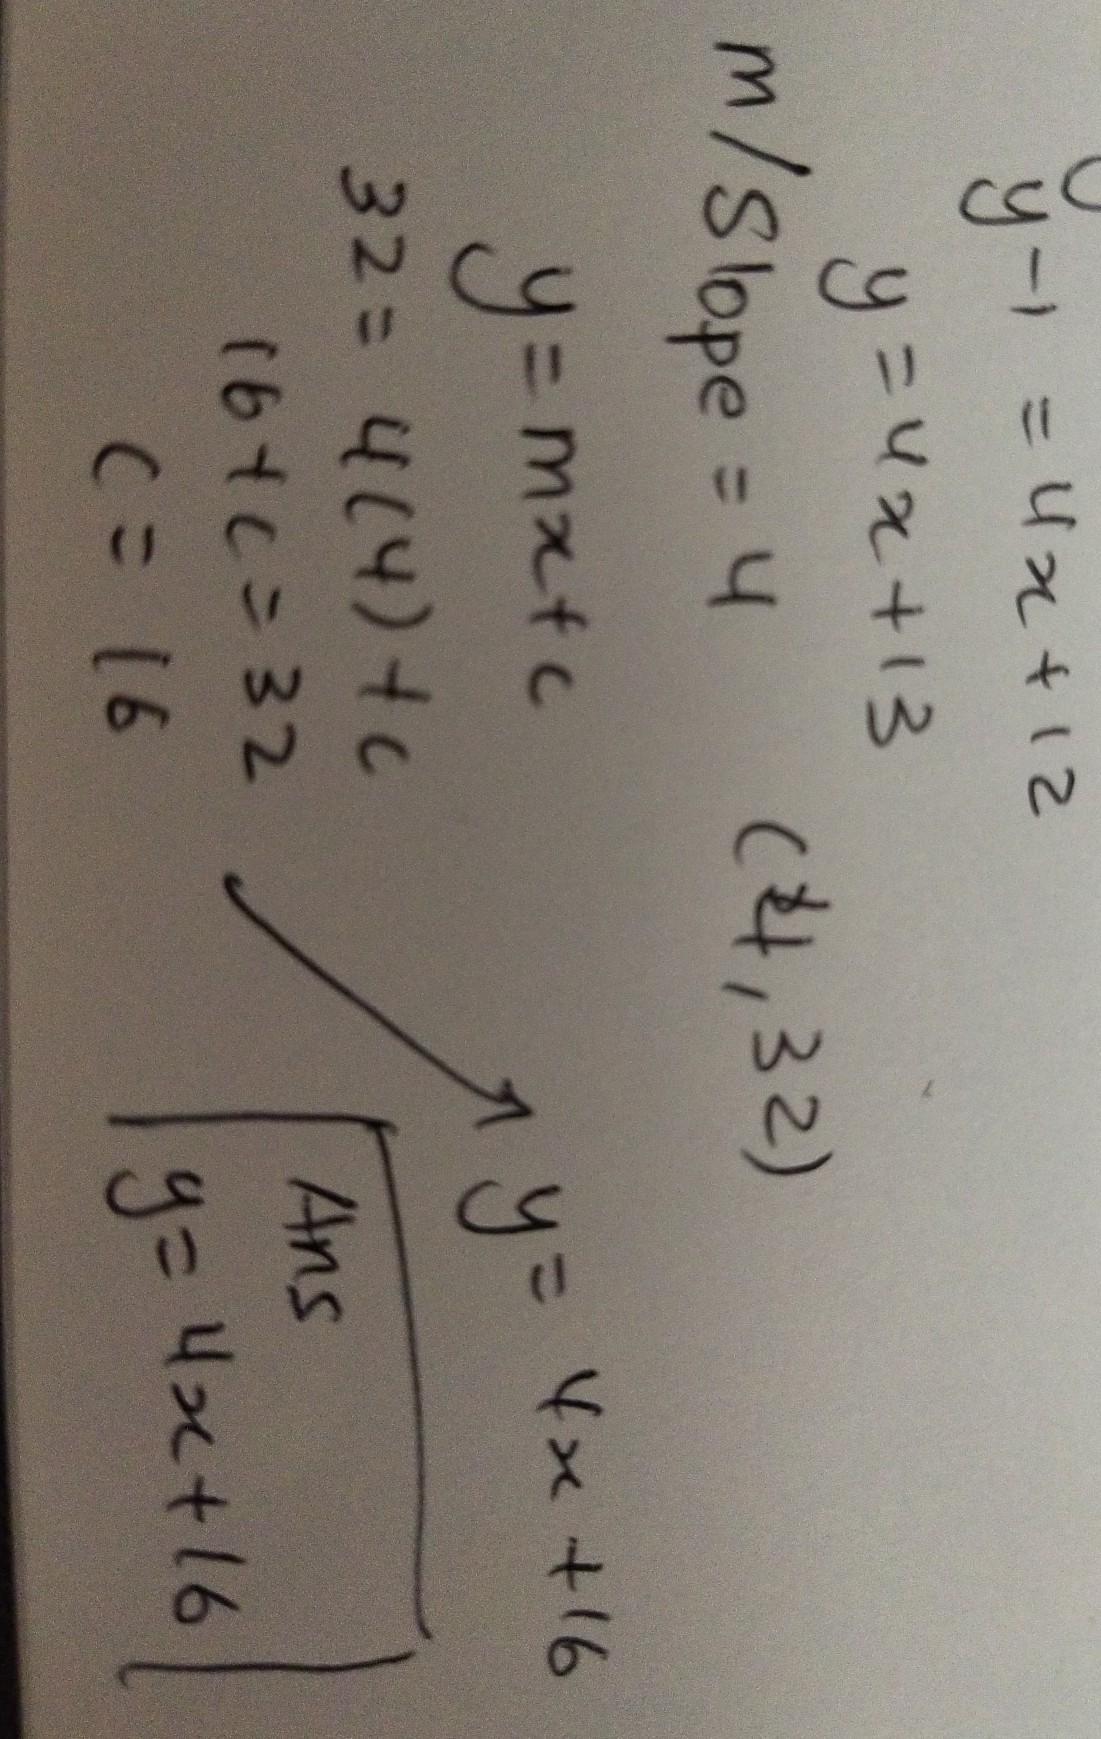 y-1 = 4x+12
y = 4x+13
m/Slope = 4 (4,32)
y = mx+c
32 = 4(4)+c
16+c = 32
c = 16
y = 4x +16
Ans
y = 4x+16